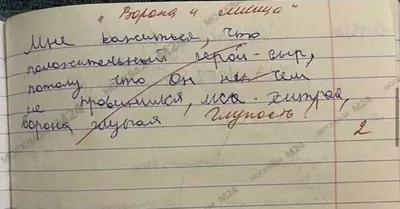 "Ворона и лисица"
Мне кажиться, что
положительный герой - сыр,
потому что он не чем
не провинился, лиса - хитрая,
ворона глупая Глупость
2
МОСКВА М24